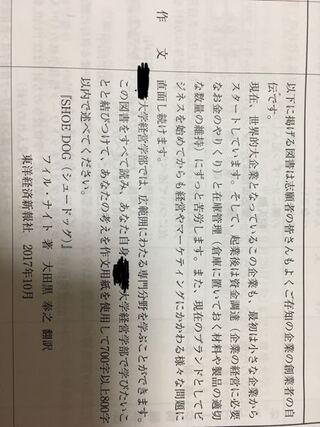 作　文
以下に掲げる図書は志願者の皆さんもよくご存知の企業の創業者の自
伝です。
現在、世界的大企業となっているこの企業も、最初は小さな企業から
スタートしています。そして、起業後は資金調達（企業の経営に必要
なお金のやりくり）と在庫管理（倉庫に置いておく材料や製品の適切
な数量の維持）にずっと苦労します。また、現在のブランドとしてビ
ジネスを始めてからも経営やマーケティングにかかわる様々な問題に
直面し続けます。
大学経営学部では、広範囲にわたる専門分野を学ぶことができます。
この図書をすべて読み、あなた自身 大学経営学部で学びたいこ
とと結びつけて、あなたの考えを作文用紙を使用して700字以上800字
以内で述べてください。
『SHOE DOG（シュードッグ）』
フィル・ナイト 著　大田黒 奉之 翻訳
東洋経済新報社　2017年10月